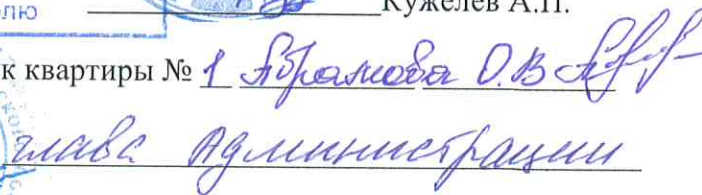 лю Кужелев А.П.
к квартиры № 1 Абрамова О.В
глава Администрации